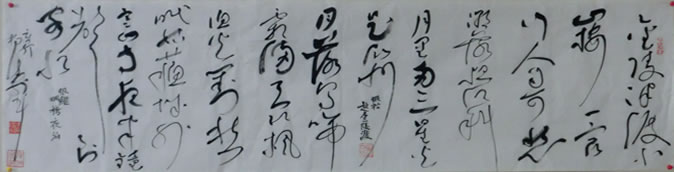 金陵津渡小
山楼一宿
行人自可愁
潮落夜江斜
月里两三星火
是瓜州
张祜
题金陵渡
月落乌啼
霜满天江枫
渔火对愁
眠姑苏城外
寒山寺夜半钟
声到
客船
张继
枫桥夜泊